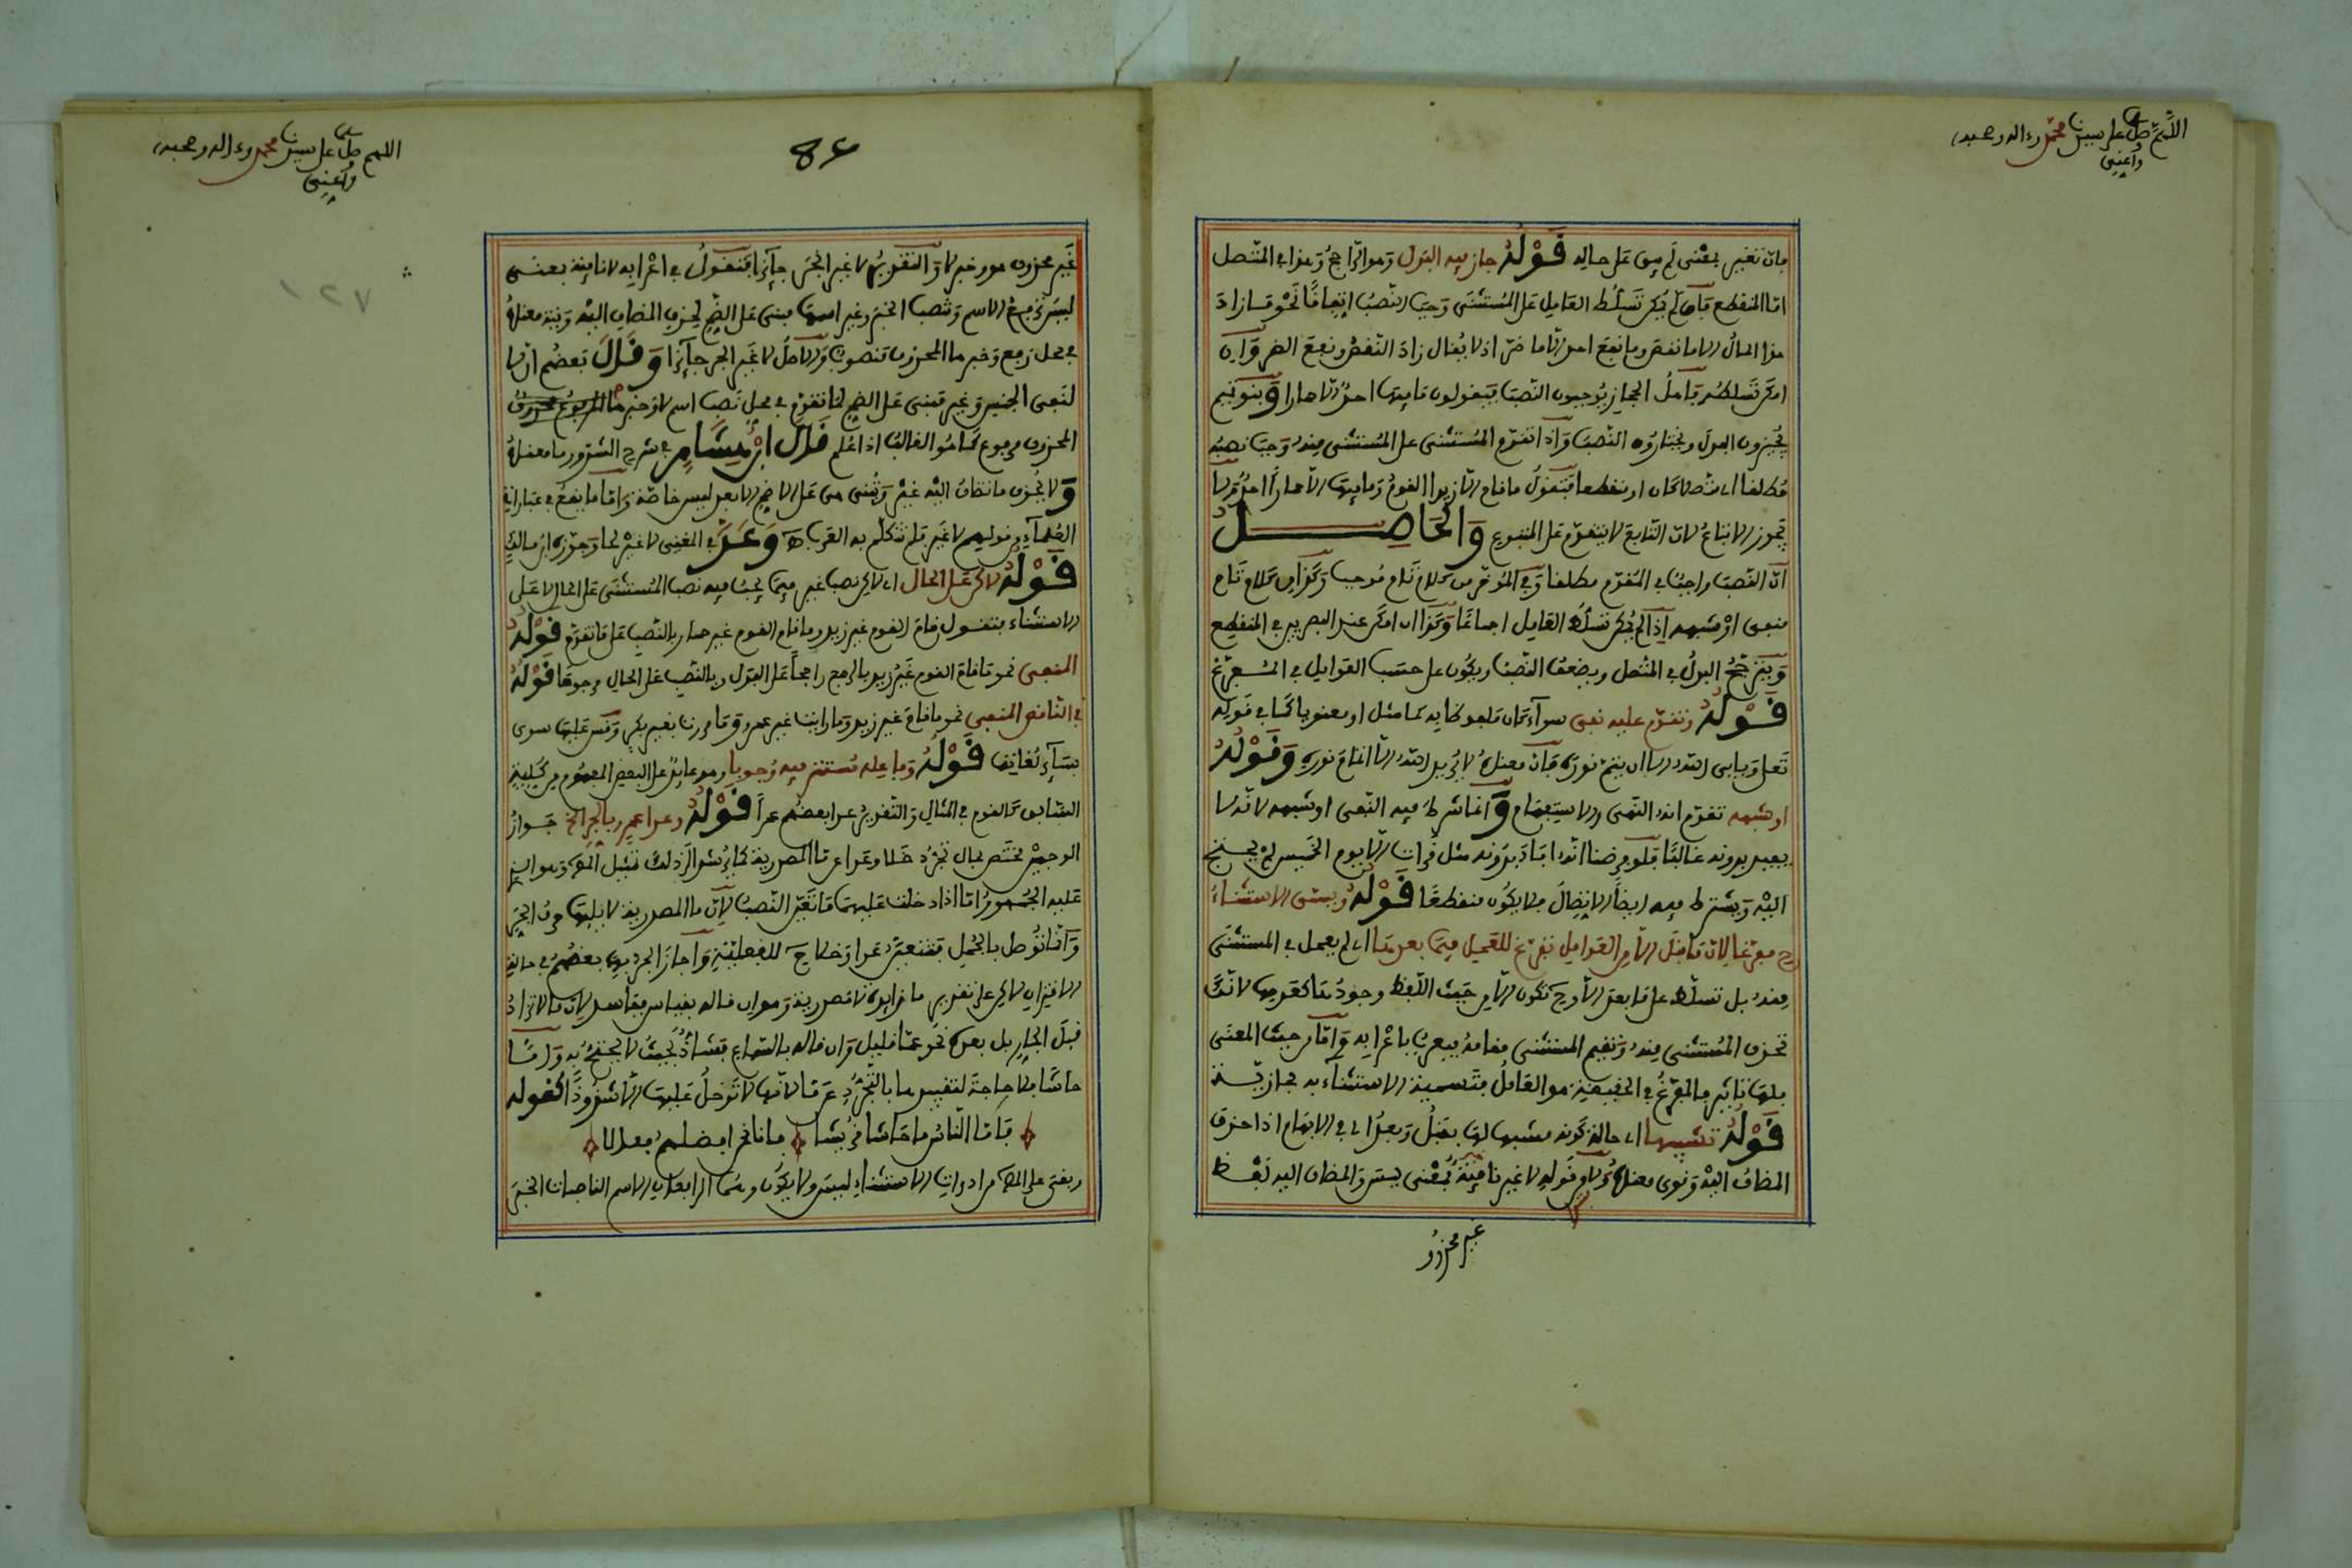 اللهم صل على سيدنا محمد وءاله وصحبه
وأعني
فإن تغير بمعنى لم يبق على حاله قَوْلُهُ جاز فيه البدل وهو الراجح وهذا في المتصل
اما المنقطع فإن لم يمكن تَسَلُّط العَامِل على المُسْتثنى وجبَ النّصْبُ اتِّفاقًا نَحْو مَا زادَ
هذا المال إلا ما نقص وما نفع احد إلا ما ضر اذ لا يُقال زادَ النقص ونفع الضر وَإن
امكن تَسَلطه فأهلُ الحجاز يُوجبون النّصبَ فيقولون ما فيها احدٌ إلا حمارا وَبنو تميم
يُجيزون البدل ويختارون النّصبَ وَاذا تقدم المُستثنى على المُستثنى منه وَجبَ نصبُه
مُطلقا اي متصلا كان او منقطعا فتَقولُ ما قام إلا زيدا القومُ وَما فيها إلا حمارًا احدٌ ولا
يجوز الاتباعُ لان التّابِعَ لا يتقدم على المتبوع وَالْحَاصِلُ
أنّ النّصبَ واجبٌ في المُقدم مطلقا وَفي المُؤخر من كلام تَام مُوجب وَكذا من كلام تَام
منفي أوْ شبهه إذا لم يُمكن تسلُّط العَامِل اجماعًا وَكذا ان امكن عند البصريين في المنقطع
وَيترجحُ البدلُ في المتصل ويضعف النّصبُ ويكُون على حسَب العَوامِل في المُفرّغ
قَوْلُهُ وتقدم عليه نفي سواء كان ملفوظا به كما مثل او معنويا كما في قوله
تَعلى وَيابى الله إلا ان يتم نورَه فإن معناهُ لا يُريد اللهُ إلا اتمامَ نوره وَقَوْلُهُ
او شبهه تقدم انه النهي والاستفهام وَانما شرط فيه النفي او شبهه لانه لا
يفيد بدونه غالبًا فلو فرضنا انّه افادَ بدونه مثل قرأت إلا يوم الخَميس لم يحتج
اليْه وَيشترط فيه ايضًا الاتصالُ فلا يكُون منقطعًا قَوْلُهُ ويسمى الاستثناءُ
ح مفرغا لان ما قبل إلا من العَوامِل تفرغ للعَمل فيما بعدهَا اي لم يعمل في المستثنى
منه بل تسلّط على ما بعد إلا وح تكون إلا من حَيث اللّفظ وجودُها كعَدمها لانّك
تحذف المُستثنى منه وَتقيم المستثنى مقامهُ فيعربُ باعْرابه وَامّا من حيث المعنى
فلها تاثير فالمفرّغُ في الحقيقة هو العَاملُ فتَسمية الاستثناء به مجاز
قَوْلُهُ تشبيها اي حالة كونه مشبها لها بقبلُ وَبعدُ اي في الابهام اذا حذف
المضافُ اليهْ وَنوى معناهُ وَلا من قوله لا غير نافية بمعْنى ليسَ وَالمضاف اليه لفظ
غير محذوف
اللهم صل على سيدنا محمد وءاله وصحبه
وأعني
86
١٢٧
غَير محذوف هو وخبر لا وَالتقديرُ لا غير الجر جآئزا فتقولُ في اعْرابه لا نافية بمعنى
ليسَ ترفعُ الاسم وَتنصبُ الخبر وغير اسمها مبني على الضم لحذف المضاف اليه وَنية معناهُ
في محل رَفع وَخبرها المحذوف منصوبٌ وَالاصلُ لا غَير الجر جآئزا وَقَالَ بَعضُهم ان لا
لنَفي الجنس وَغير مَبني على الضم لما تقدم في محل نَصب اسم لا وَخبرها
المحذوف مرفوع كمَا هُو الغالبُ اذا عُلم قَالَ ابْنُ هِشَامٍ في شرح الشذور ما معناهُ
وَلا يُحذف ما تضاف اليْه غيْر وَتُبنى هي على الضم إلا بعد ليس خاصّة وَاما ما يقعُ في عبارات
العُلمآءِ من قولهم لا غَير فلم تتكلم به العَرب اه وَعَدَّ في المغني لا غيْر لحنا وَجوّزه ابن مالك
قَوْلُهُ لا كن على الحال اي لاكن نصب غير فيما يجبُ فيه نصب المُستثنى على الحال لا على
الاستثناء فتقول قامَ القوم غير زيد وما قام القوم غير حمار بالنّصب على ما تقدّم قَوْلُهُ
المنفي نحو ما قامَ القوم غَيرُ زيد بالرفع راجحًا على البَدل وبالنّصب على الحال مرجوحًا قَوْلُهُ
في الناقص المنفي نحو ما قامَ غير زيد وَما رايتُ غير عمرو وَما مررتُ بغير بكر وَقس عَليها سوى
بسَآئر لُغاتها قَوْلُهُ وَفاعله مُستتر فيه وُجوبا وهو عائد على البعض المفهوم من كُلية
السّابق كالقوم في المثال وَالتقديرُ عدا بعضُهم عمرًا قَوْلُهُ وعدا عمرو بالجر الخ جَوازُ
الوجهيْن مختَص بحال تجرُّد خَلا وعَدا عن ما المصدرية كما يُرشد الى ذلك تمثيل المص وَهو الذي
عَليه الجُمهورُ امّا اذا دخلت عَليهمَا مَا تعَيّن النّصبُ لأِن ما المصدرية لا يليها حرفُ الجَر
وَانما تُوصل بالجُمل فتتعيّنُ عَدا وَخلا ح للفعلية وَاجازَ الجر بهمَا بعضُهم في حالة
الاقتران لاكن على تقدير ما زايدة لا مَصدرية وَهو ان قاله بقياس ففاسد لان ما لا تزادُ
قبلَ الجار بل بعده نحو عمّا قليل وَان قاله بالسّماع فشاذ بحيثُ لا يُحتجُّ به وَامّا
حاشَا فلا حاجةَ لتقييدها بالتجرُّد عن مَا لانّها لا تَدخلُ عَليها إلا شُذوذًا كقوله
فَأمّا الناسُ ما حَاشا قريشا فإنا نحن افضلهم فعالا
وبقي على المص من ادوات الاستثناء ليسَ ولا يكون وهُما الرافعان الاسم الناصبان الخبَر